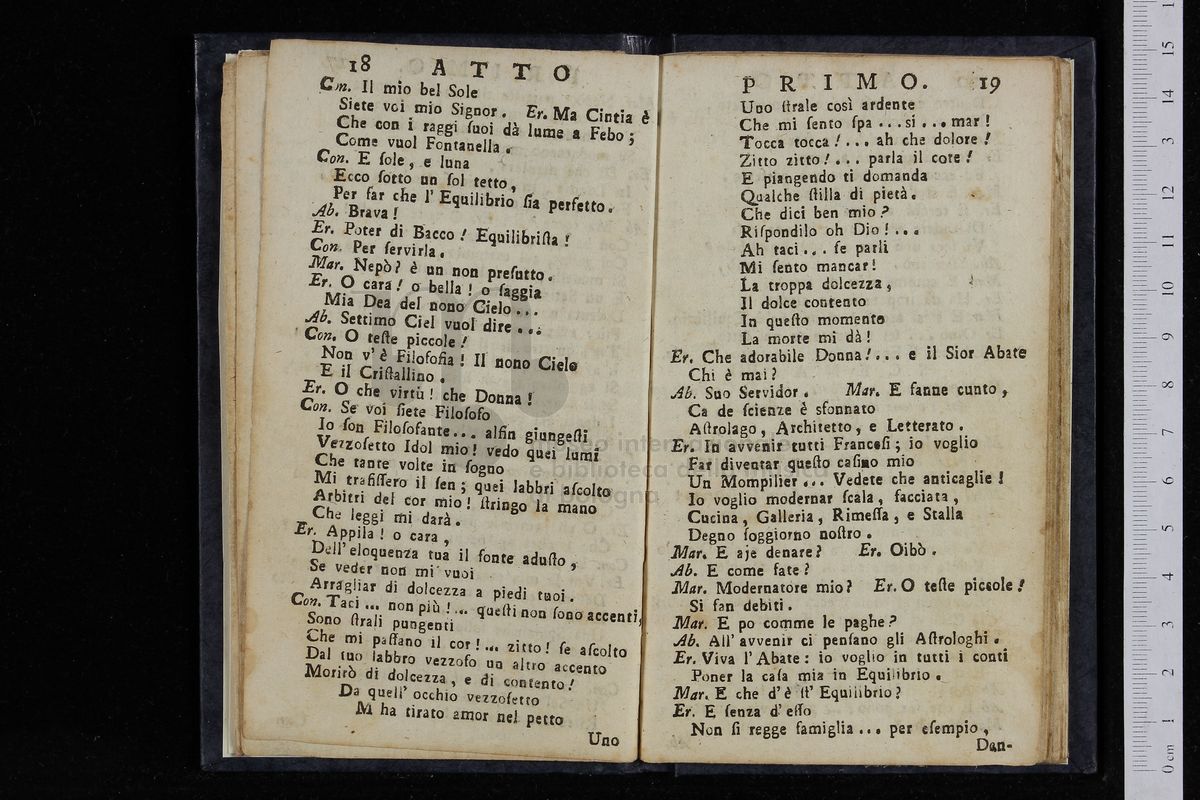 18 ATTO
Con. Il mio bel Sole
Siete voi mio Signor. Er. Ma Cintia è
Che con i raggi ſuoi dà lume a Febo;
Come vuol Fontanella.
Con. E ſole, e luna
Ecco ſotto un ſol tetto,
Per far che l'Equilibrio ſia perfetto.
Ab. Brava!
Er. Poter di Bacco! Equilibriſta!
Con. Per ſervirla.
Mar. Nepò? è un non preſutto.
Er. O cara! o bella! o ſaggia
Mia Dea del nono Cielo...
Ab. Settimo Ciel vuol dire...
Con. O teſte piccole!
Non v'è Filoſofia! Il nono Cielo
E il Criſtallino.
Er. O che virtù! che Donna!
Con. Se voi ſiete Filoſofo
Io ſon Filoſofante... alfin giungeſti
Vezzoſetto Idol mio! vedo quei lumi
Che tante volte in ſogno
Mi trafiſſero il ſen; quei labbri aſcolto
Arbitri del cor mio! ſtringo la mano
Che leggi mi darà.
Er. Appila! o cara,
Dell'eloquenza tua il fonte aduſto,
Se veder non mi vuoi
Arragliar di dolcezza a piedi tuoi.
Con. Taci... non più!... queſti non ſono accenti,
Sono ſtrali pungenti
Che mi paſſano il cor!... zitto! ſe aſcolto
Dal tuo labbro vezzoſo un altro accento
Morirò di dolcezza, e di contento!
Da quell'occhio vezzoſetto
M ha tirato amor nel petto
Uno
PRIMO. 19
Uno ſtrale così ardente
Che mi ſento ſpa...ſi...mar!
Tocca tocca!... ah che dolore!
Zitto zitto!... parla il core!
E piangendo ti domanda
Qualche ſtilla di pietà.
Che dici ben mio?
Riſpondilo oh Dio!...
Ah taci... ſe parli
Mi ſento mancar!
La troppa dolcezza,
Il dolce contento
In queſto momento
La morte mi dà!
Er. Che adorabile Donna!... e il Sior Abate
Chi è mai?
Ab. Suo Servidor. Mar. E fanne cunto,
Ca de ſcienze è sfonnato
Aſtrolago, Architetto, e Letterato.
Er. In avvenir tutti Franceſi; io voglio
Far diventar queſto caſino mio
Un Mompilier... Vedete che anticaglie!
Io voglio modernar ſcala, facciata,
Cucina, Galleria, Rimeſſa, e Stalla
Degno ſoggiorno noſtro.
Mar. E aje denare? Er. Oibò.
Ab. E come fate?
Mar. Modernatore mio? Er. O teſte piccole!
Si fan debiti.
Mar. E po comme le paghe?
Ab. All'avvenir ci penſano gli Aſtrologhi.
Er. Viva l'Abate: io voglio in tutti i conti
Poner la caſa mia in Equilibrio.
Mar. E che d'è ſt'Equilibrio?
Er. E ſenza d'eſſo
Non ſi regge famiglia... per eſempio,
Dan-
museo internazionale
e biblioteca della musica
bologna
0 cm 1 2 3 4 5 6 7 8 9 10 11 12 3 14 15